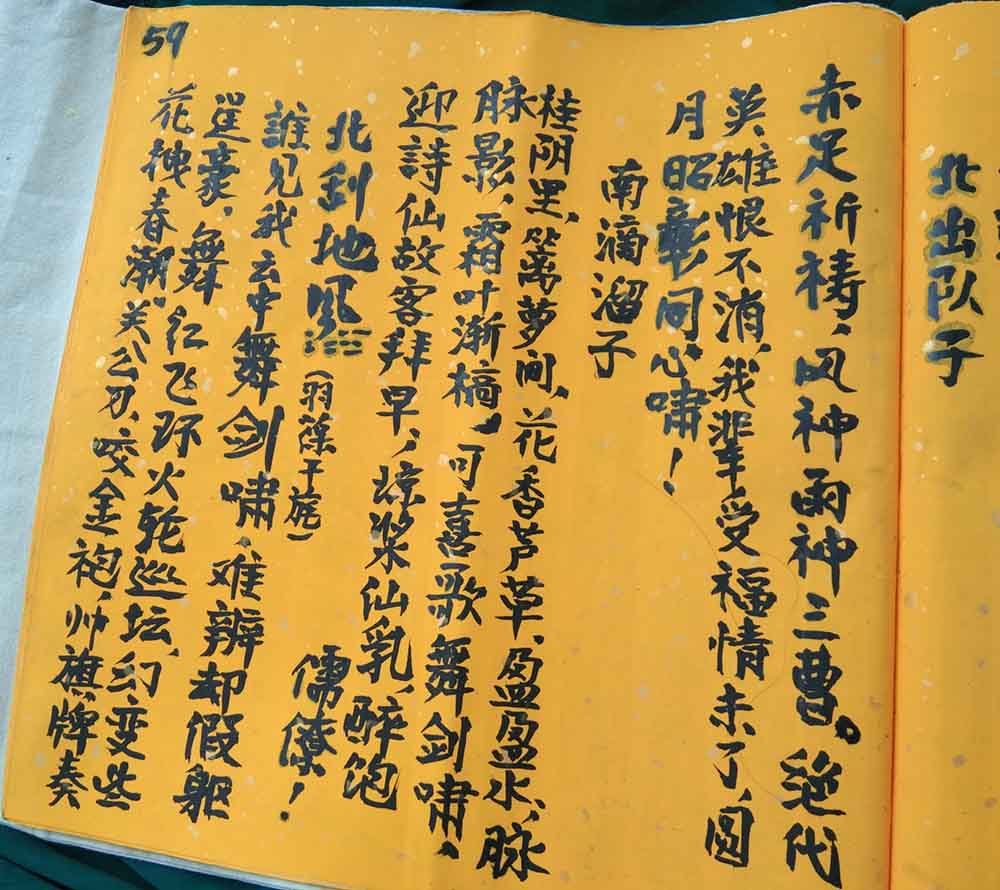 北出队子
赤足祈祷、风神雨神三曹。绝代
英雄恨不消,我辈受福情未了,圆
月昭彰同心啸!
南滴溜子
桂阴里、篱萝间、花香芦草、盈盈水、脉
脉影、霜叶渐槁。可喜歌舞剑啸、
迎詩仙故客拜早、琼浆仙乳、醉泡
儒僚!
北刮地風(羽葆干旄)
誰见我云中舞剑啸、难辨却假躯
逞豪、舞红飞环火轮巡坛、幻变些
花拽春潮"关公刀、咬金袍、帅旗、牌奏
59